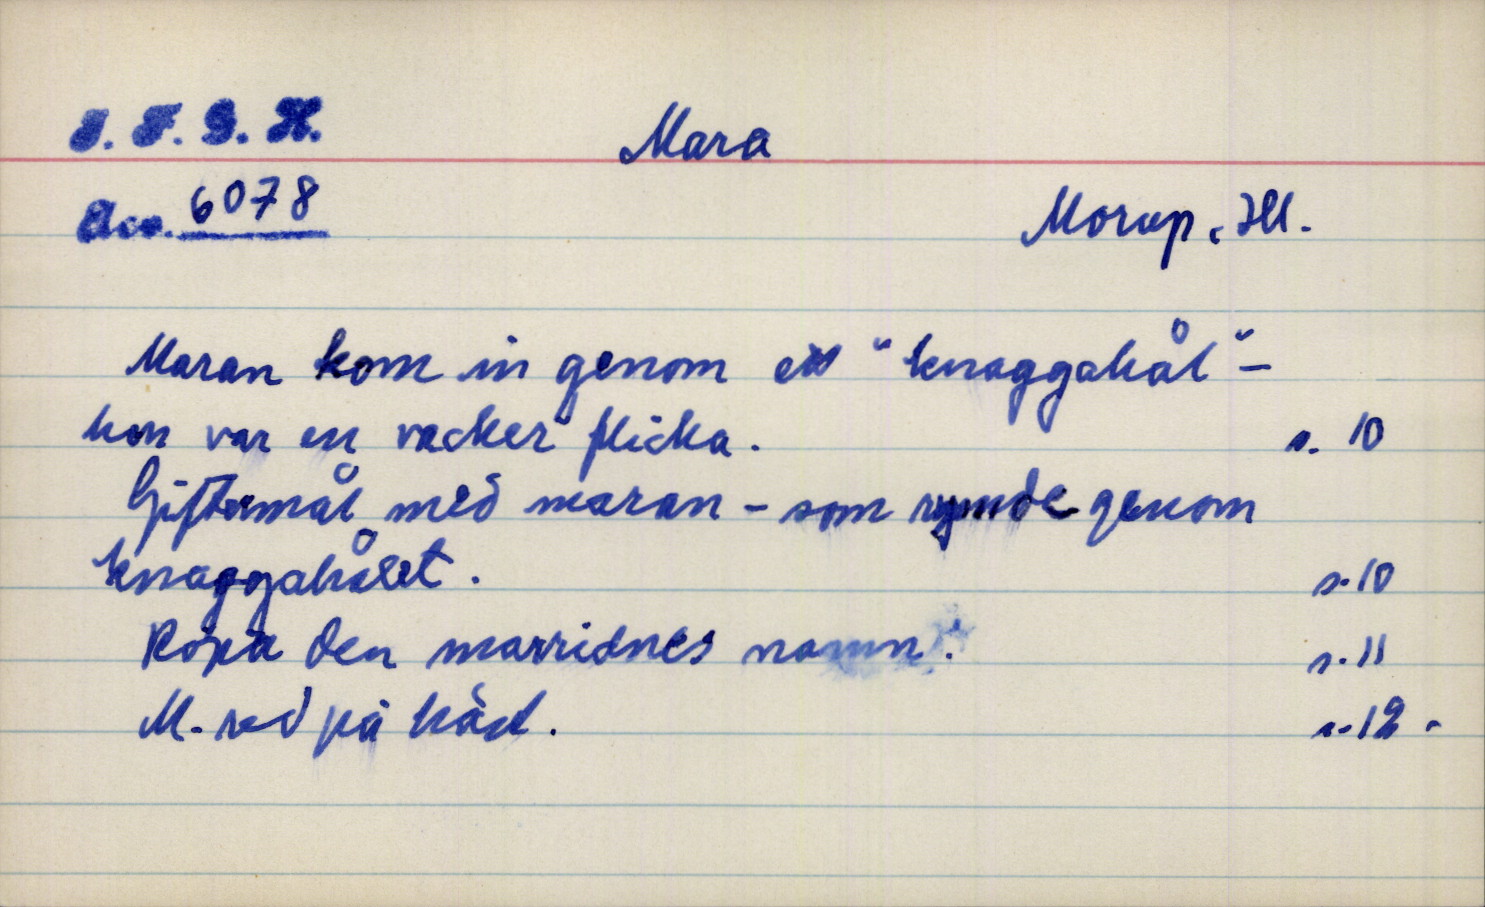 I. F. G. H.
Mara
Acc. 6078
Morup, Hll.
Maran kom in genom ett "knaggahål" –
hon var en vacker flicka. s. 10
Giftermål med maran – som rymde genom
knaggahålet. s. 10
Ropa den marridnes namn. s. 11
M. red på häst. s. 12.